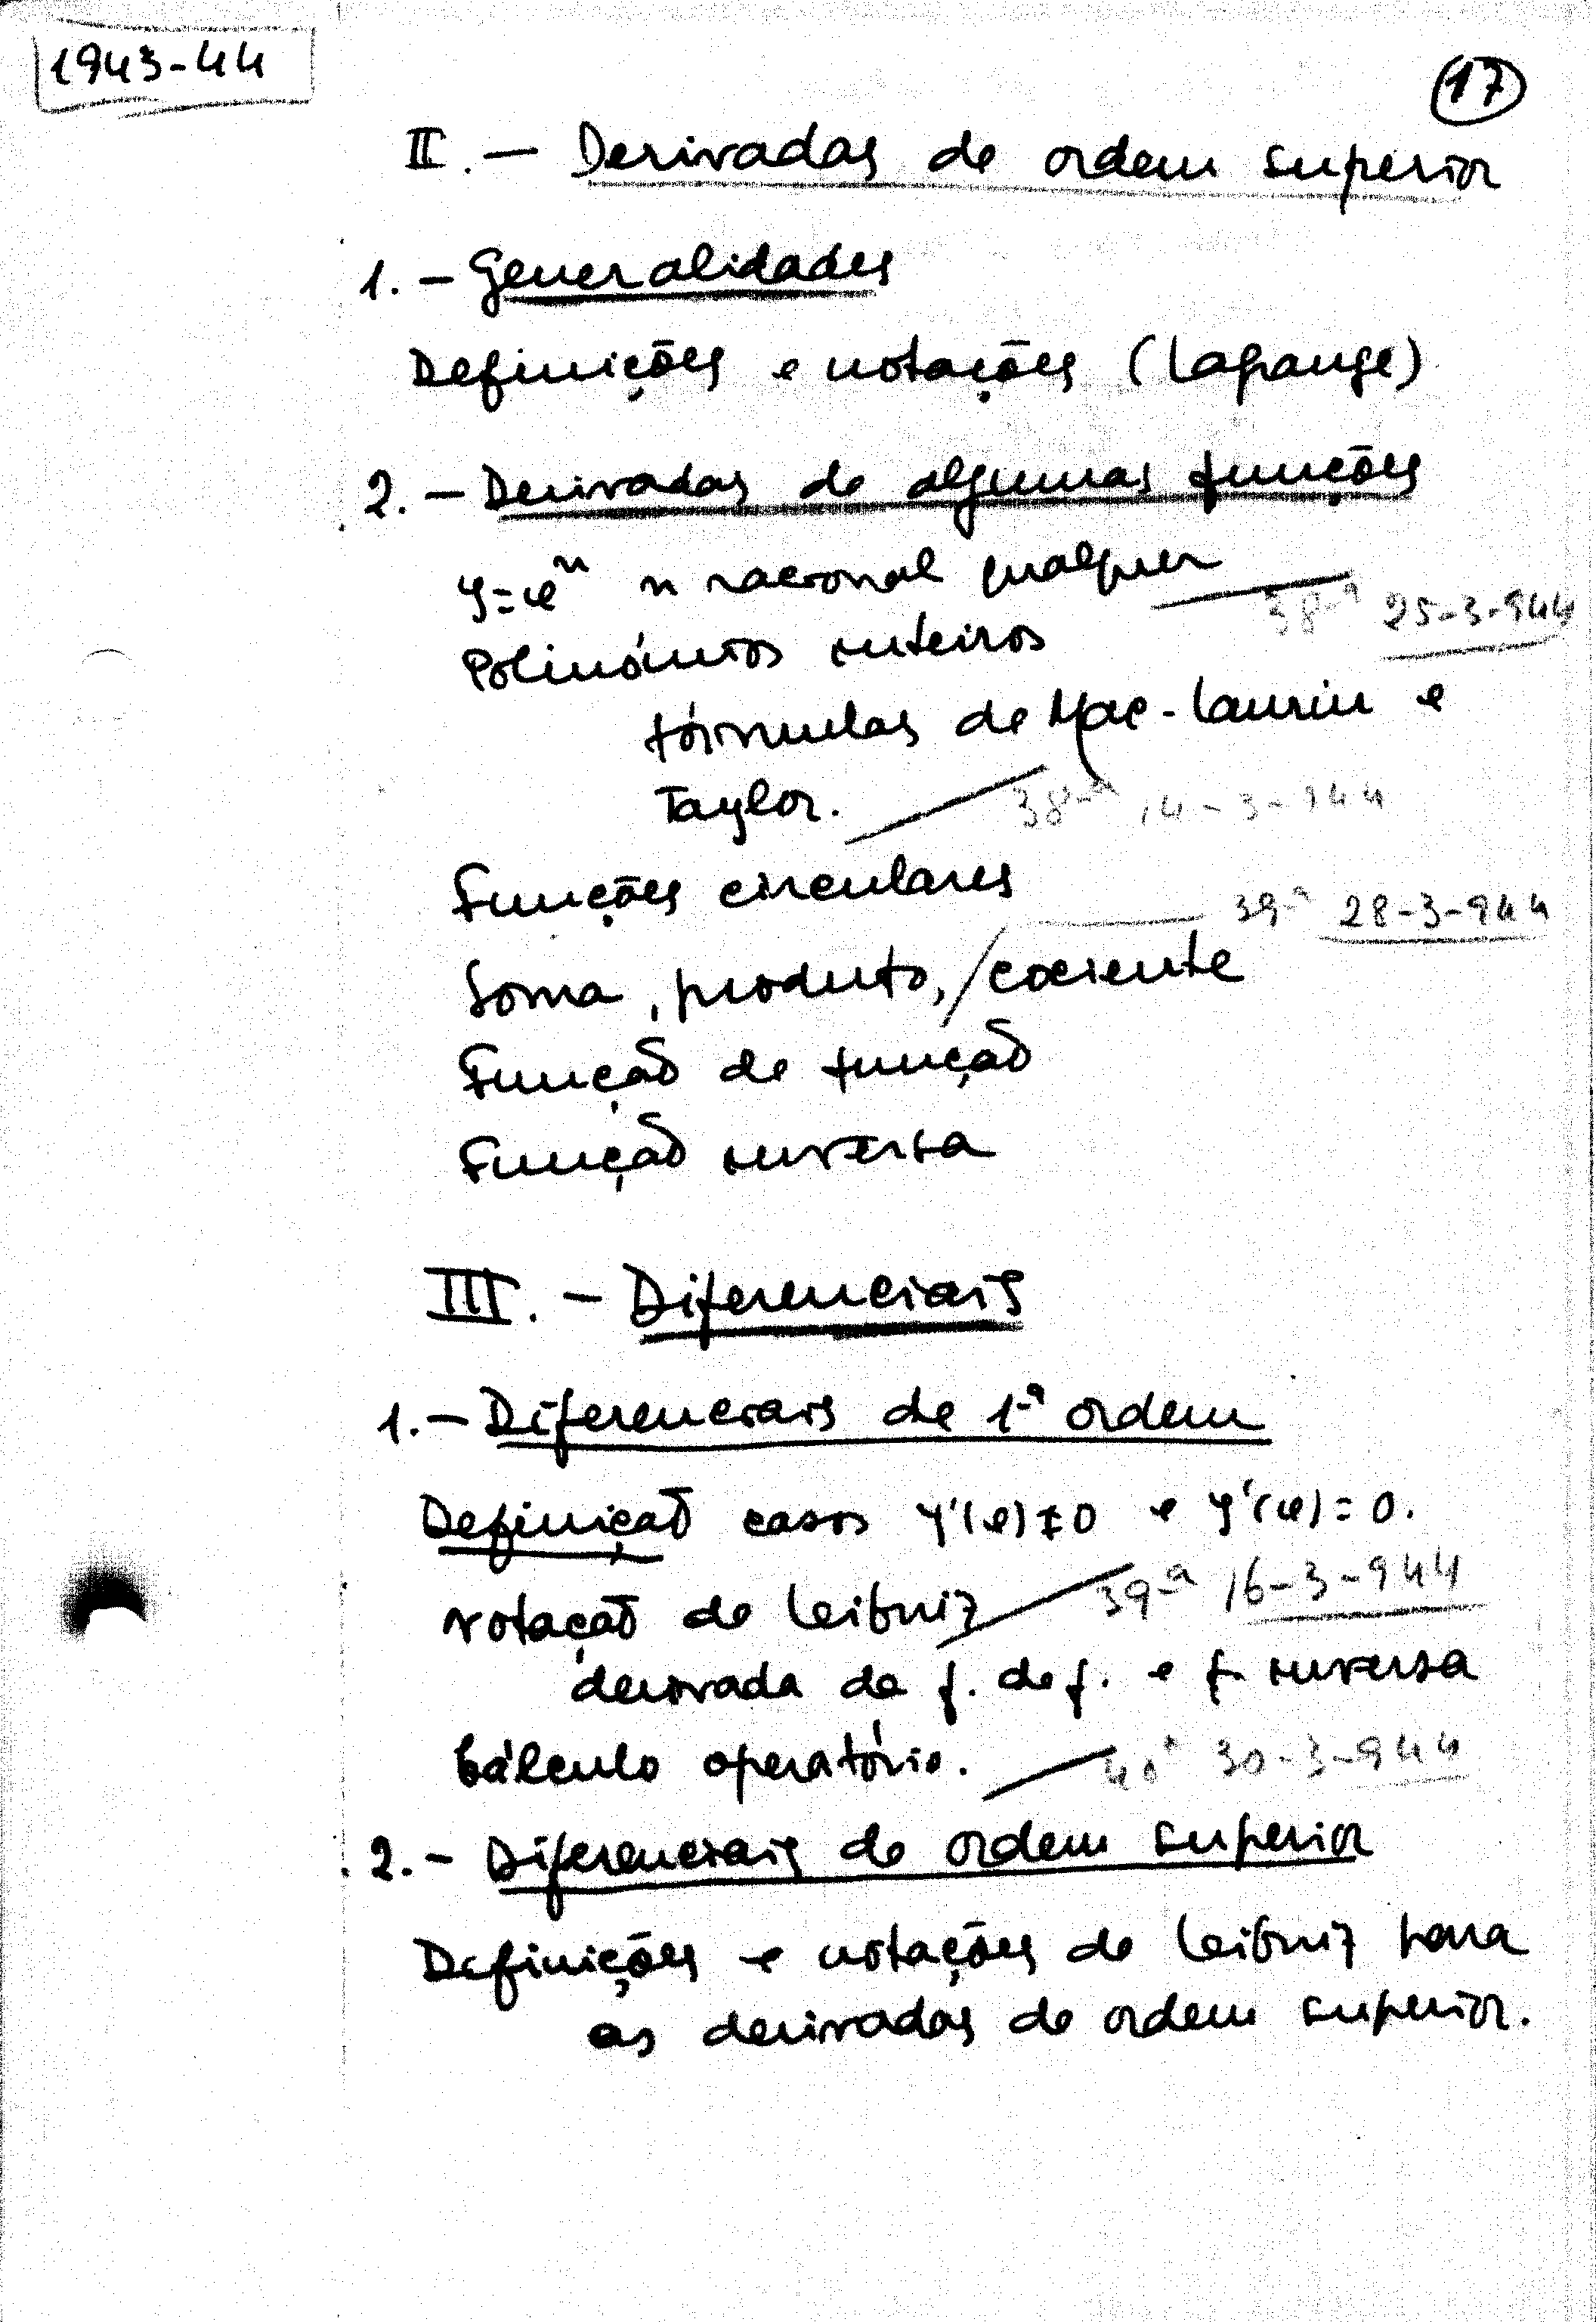 1943-44
17
II. — Derivadas de ordem superior
1. — Generalidades
Definições e notações (Lagrange)
2. — Derivadas de algumas funções
y=xⁿ n racional qualquer
38-ª 25-3-944
Polinómios inteiros
fórmulas de Mac-Laurin e
Taylor.
38-ª 14-3-944
Funções circulares
39-ª 28-3-944
Soma, produto, / cociente
Função de função
Função inversa
III. — Diferenciais
1. — Diferenciais de 1-ª ordem
Definição casos y'(x)≠0 e y'(x)=0.
notação de Leibniz
39-ª 16-3-944
derivada de f. de f. e f. inversa
Cálculo operatório.
40ª 30-3-944
2. — Diferenciais de ordem superior
Definições e notações de Leibniz para
as derivadas de ordem superior.